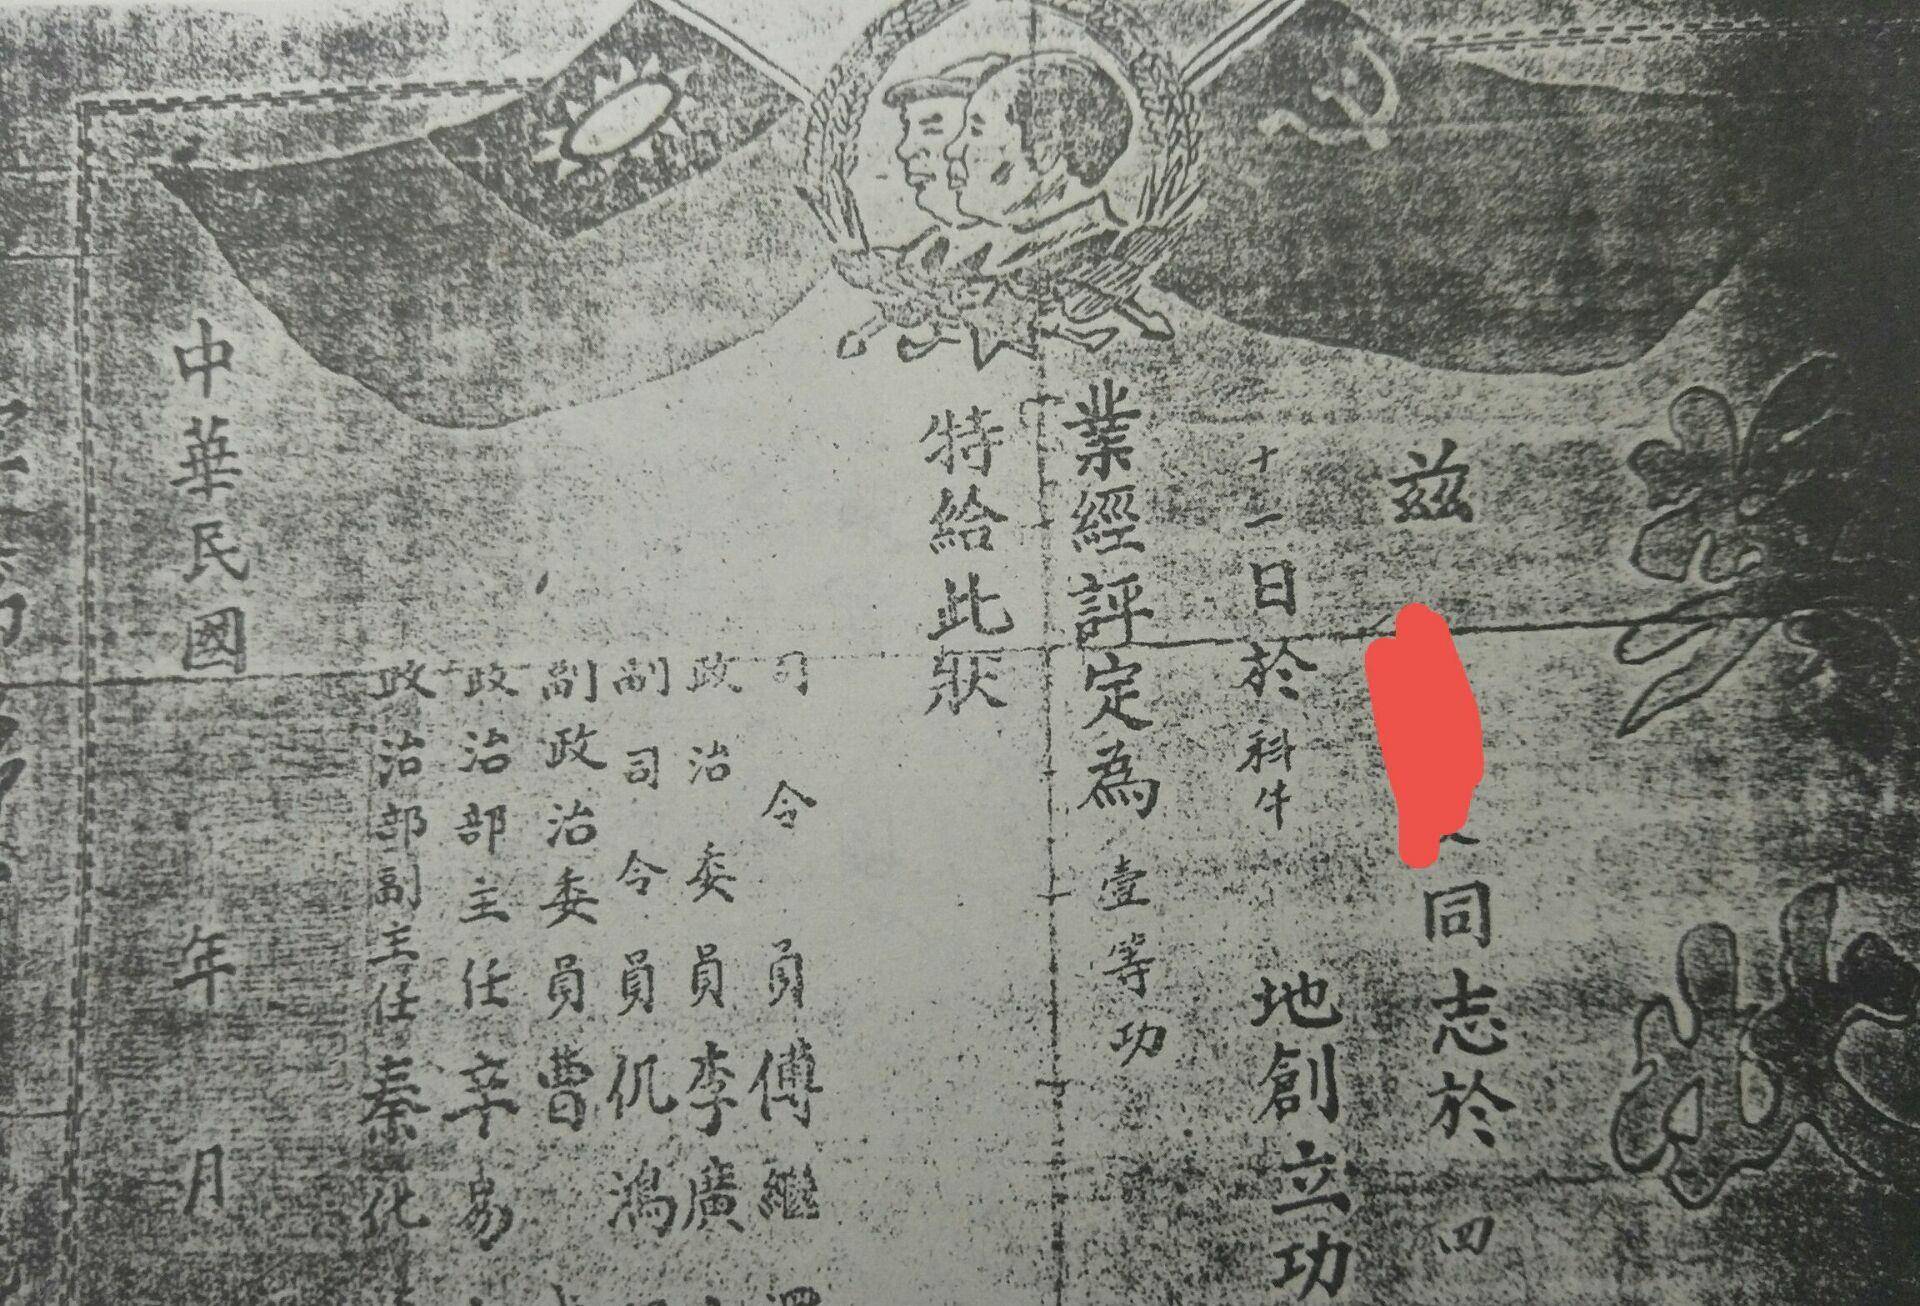 兹
同志於四
十一日於科牛地創立功
業經評定為壹等功
特給此狀
司令員傅繼
政治委員李廣
副司令員仉鴻
副政治委員曹
政治部主任辛易
政治部副主任秦化
中華民國年月